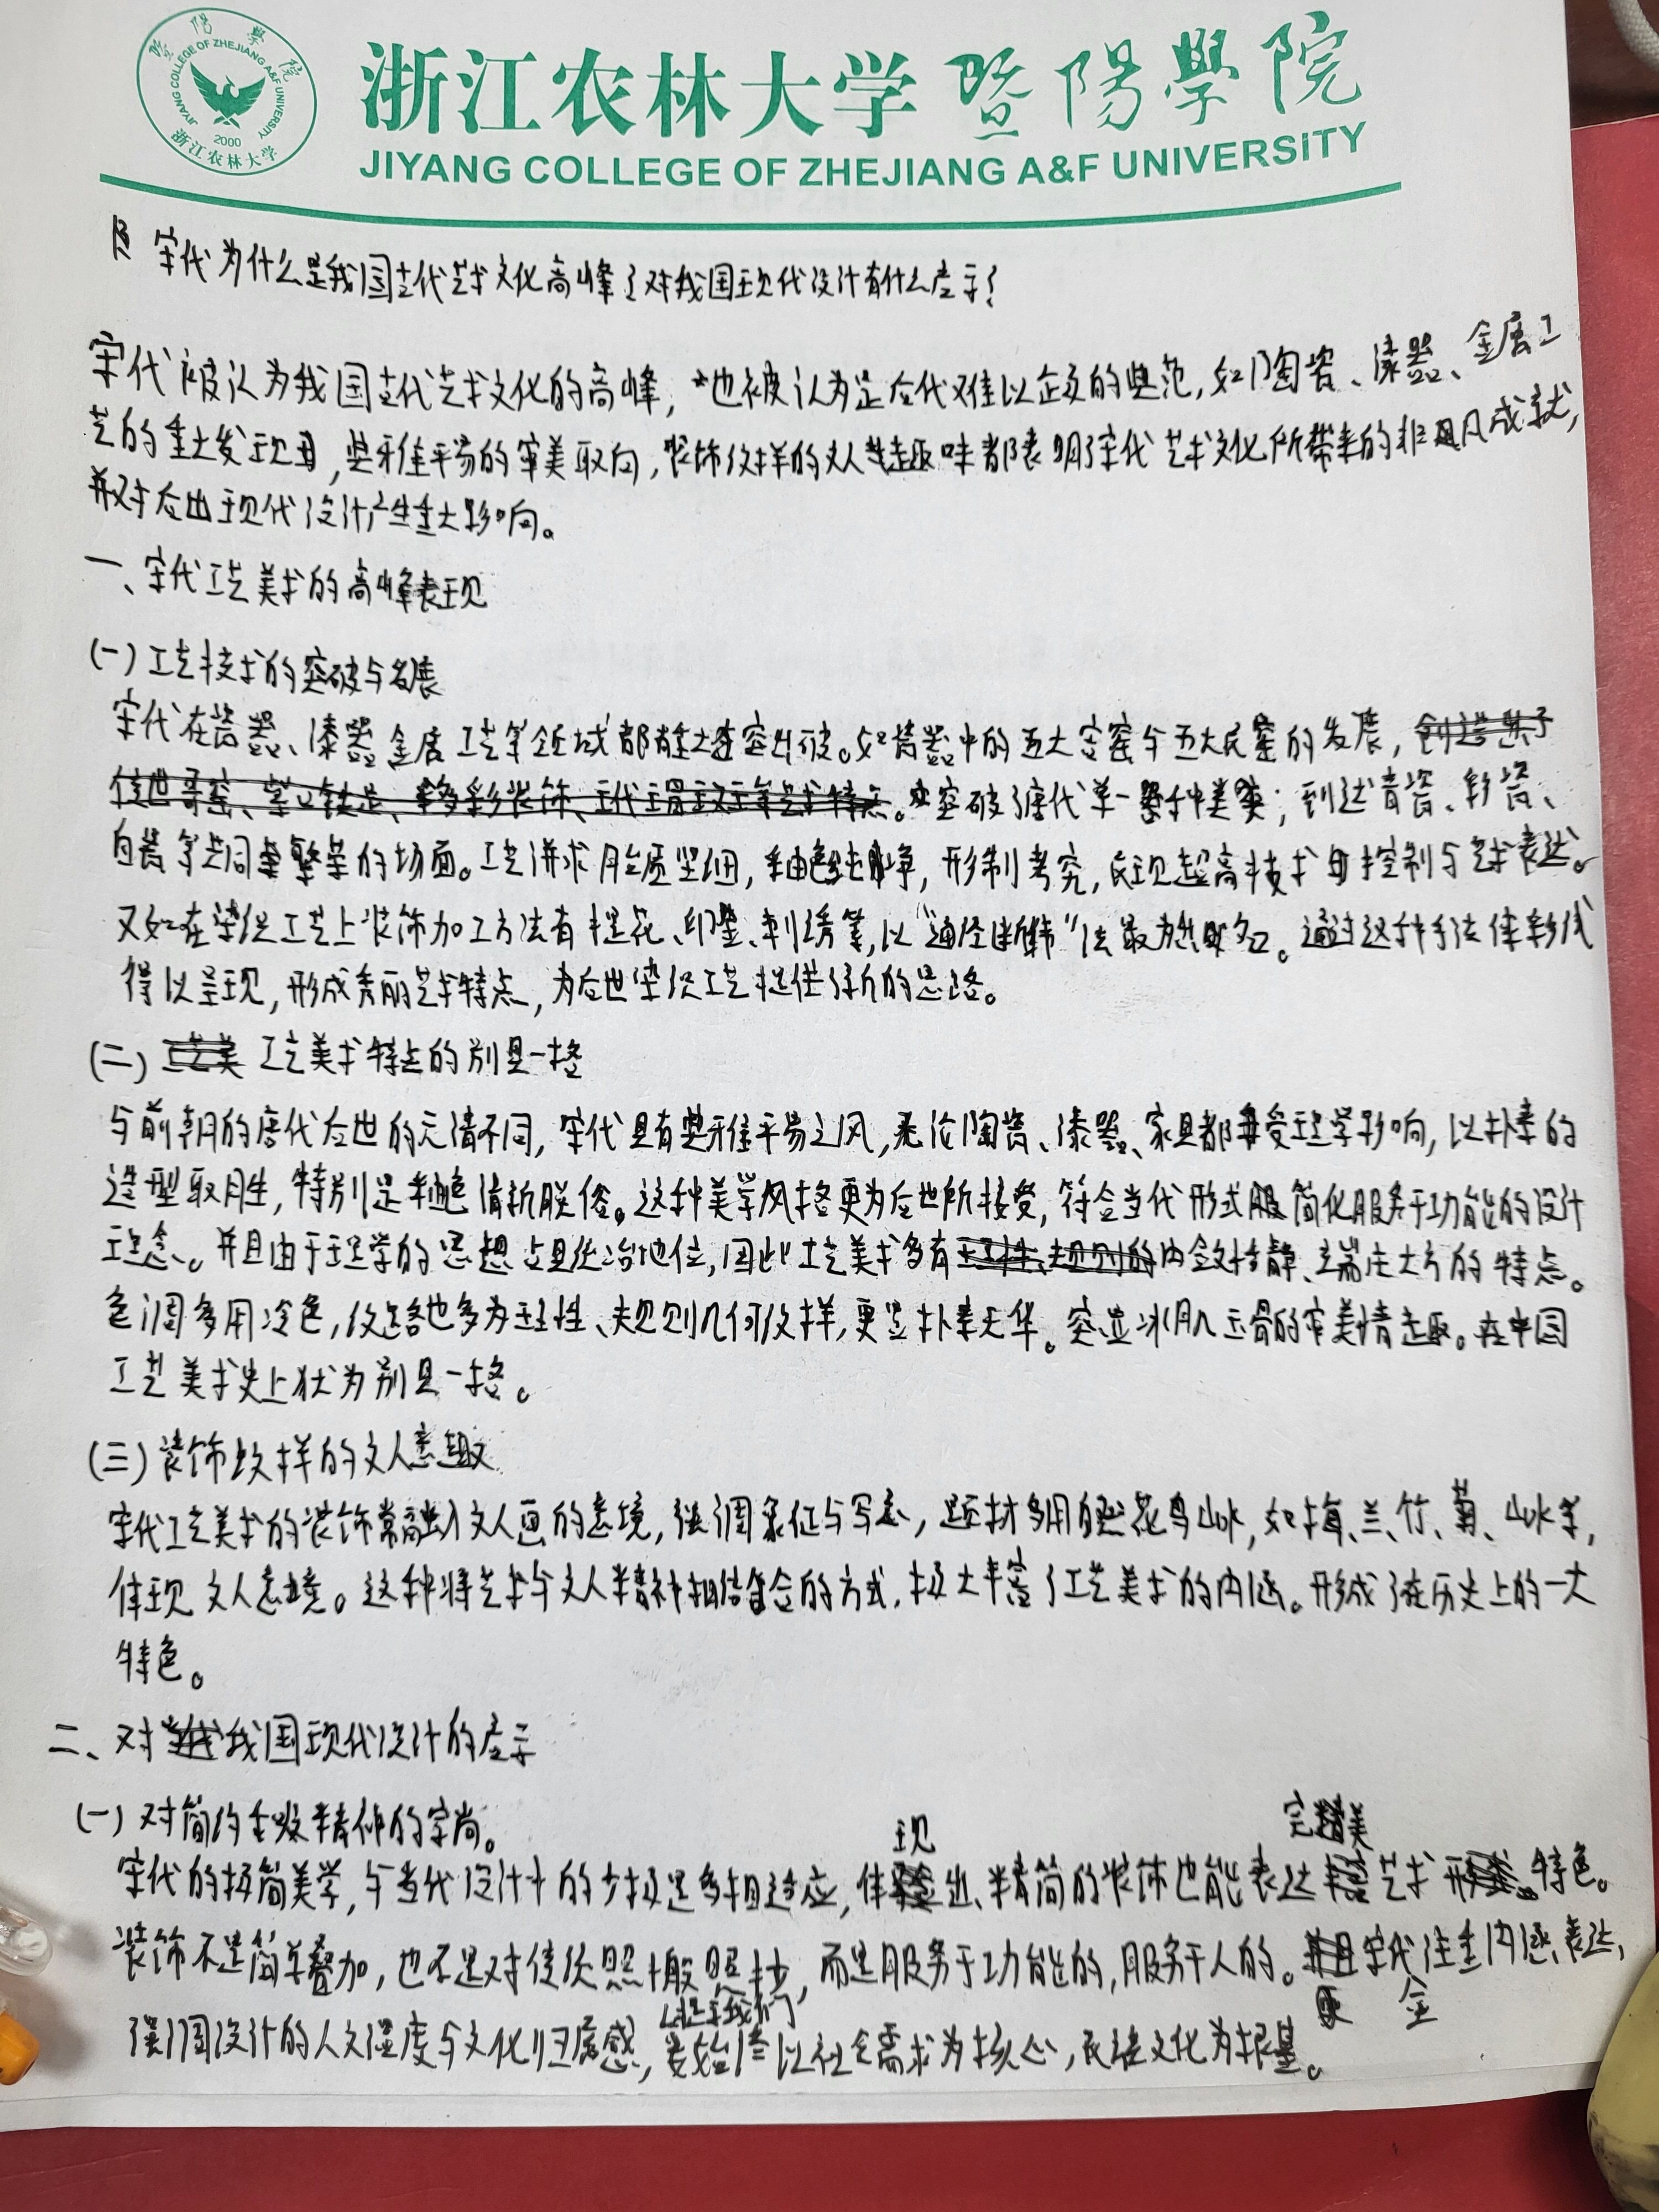 暨陽學院
JIYANG COLLEGE OF ZHEJIANG A&F UNIVERSITY
2000
浙江农林大学
浙江农林大学 暨陽學院
JIYANG COLLEGE OF ZHEJIANG A&F UNIVERSITY
宋代为什么是我国古代艺术文化高峰？对我国现代设计有什么启示？
宋代被认为我国古代艺术文化的高峰，也被认为是后代难以企及的典范，如陶瓷、漆器、金属工
艺的重大发现，典雅平易的审美取向，装饰纹样的文人趣味都表明了宋代艺术文化所带来的非凡成就，
并对后世现代设计产生重大影响。
一、宋代工艺美术的高峰表现
(一) 工艺技术的突破与发展
宋代在瓷器、漆器金属工艺等领域都有重大突破。如瓷器中的五大官窑与五大民窑的发展，
突破了唐代单一种类；到达青瓷、彩瓷、
白瓷等共同繁荣的场面。工艺讲求胎质坚细，釉色纯净，形制考究，展现超高技术控制与艺术表达。
又如在染织工艺上装饰加工方法有提花、印染、刺绣等，以“通经断纬”法最为出名。通过这种手法使彩线
得以呈现，形成秀丽艺术特点，为后世染织工艺提供了新的思路。
(二) 工艺美术特点的别具一格
与前朝的唐代后世的元清不同，宋代具有典雅平易之风，无论陶瓷、漆器、家具都受理学影响，以朴素的
造型取胜，特别是釉色清新脱俗。这种美学风格更为后世所接受，符合当代形式简化服务于功能的设计
理念。并且由于理学的思想占具统治地位，因此工艺美术多有内敛恬静、端庄大方的特点。
色调多用冷色，纹路也多为理性、规则几何纹样，更显朴素无华。突显冰肌玉骨的审美情趣。在中国
工艺美术史上状为别具一格。
(三) 装饰纹样的文人意趣
宋代工艺美术的装饰常融入文人画的意境，强调象征与写意，题材多用自然花鸟山水，如梅、兰、竹、菊、山水等，
体现文人意境。这种将艺术与文人精神相结合的方式，极大丰富了工艺美术的内涵。形成了在历史上的一大
特色。
二、对我国现代设计的启示
(一) 对简约至极精神的崇尚。
宋代的极简美学，与当代设计中的少极是多相适应，体现出、精简的装饰也能表达完美艺术特色。
装饰不是简单叠加，也不是对传统照搬照抄，而是服务于功能的，服务于人的。宋代注重内涵表达，
强调设计的人文温度与文化归属感，提示我们要始终以社会需求为核心，民族文化为根基。